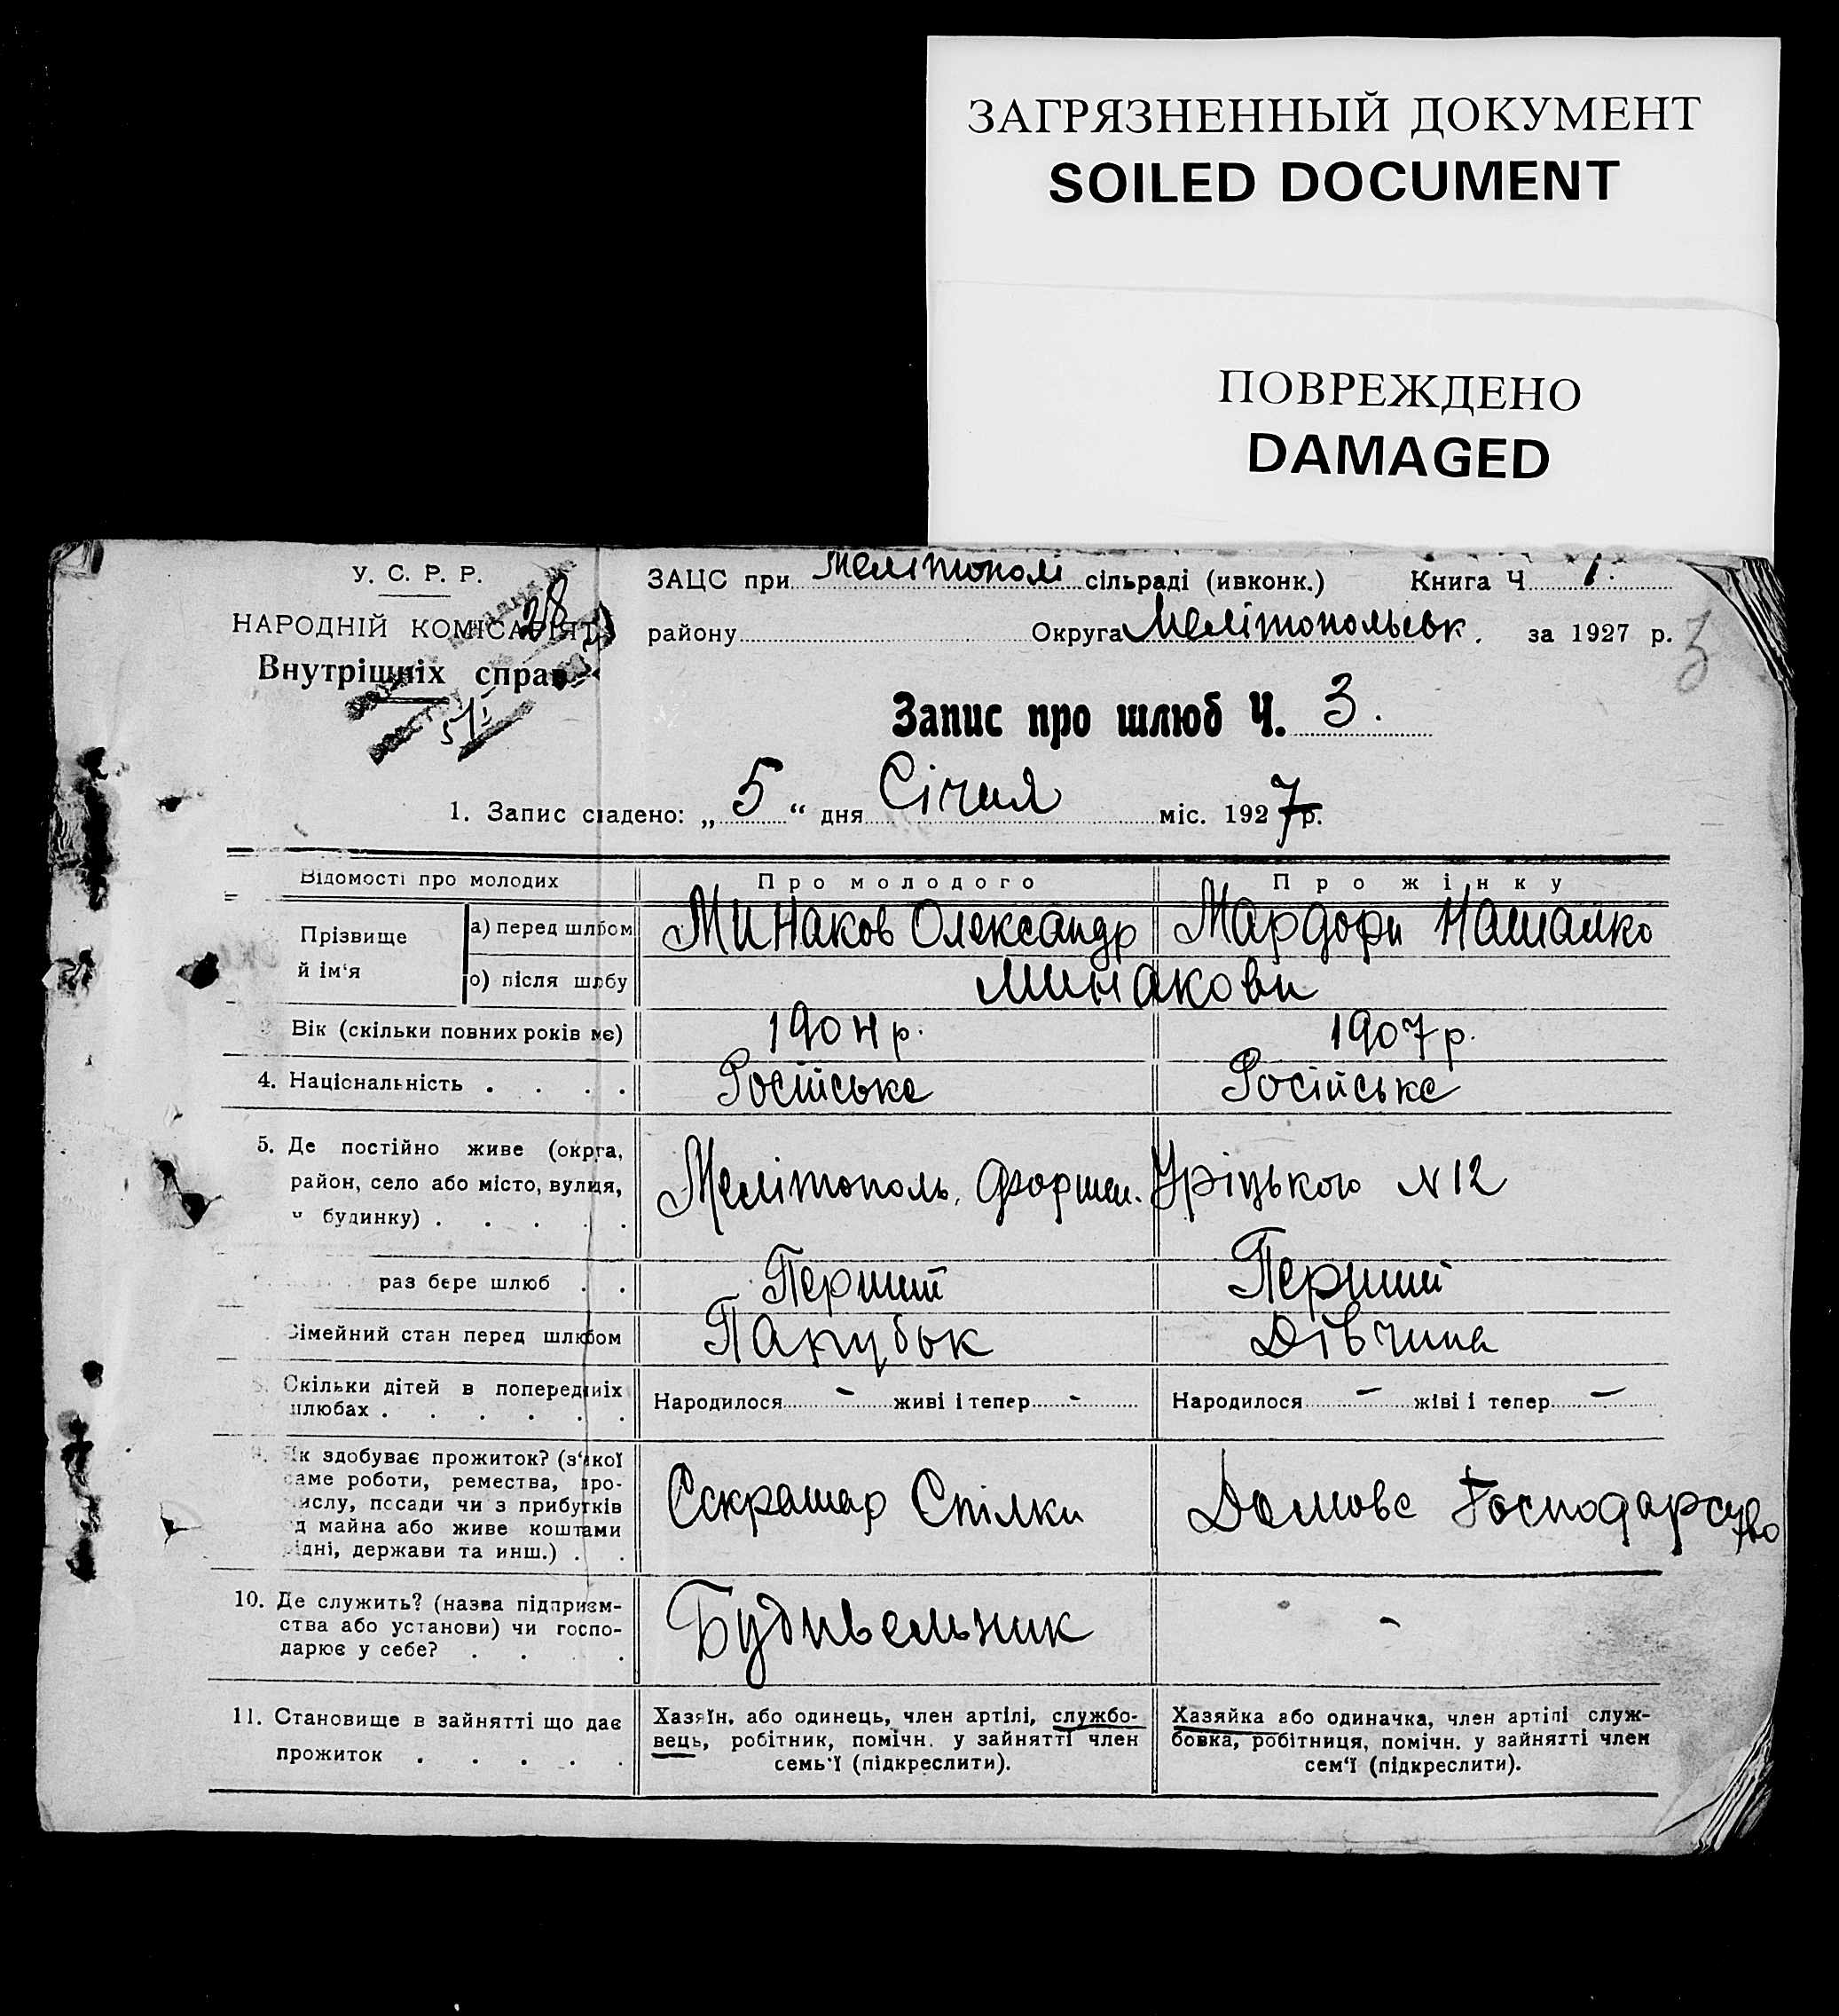 ЗАГРЯЗНЕННЫЙ ДОКУМЕНТ
SOILED DOCUMENT
ПОВРЕЖДЕНО
DAMAGED
У. С. Р. Р.
НАРОДНІЙ КОМІСАРІЯТ
Внутрішніх справ
28
51
ЗАЦС при Мелітополі сільраді (ивконк.) Книга Ч 1.
району Округа Мелітопольськ. за 1927 р.
3
Запис про шлюб Ч. 3.
1. Запис складено: „ 5 “ дня Січня міс. 1927 р.
Відомості про молодих Про молодого Про жінку
Прізвище й ім‘я
а) перед шлюбом Минаков Олександр Мардари Наталко
б) після шлюбу Минакови
Вік (скільки повних років має) 1904 р. 1907 р.
4. Національність . . . . Російська Російська
5. Де постійно живе (округа,
район, село або місто, вулиця,
ч будинку) . . . . . Мелітополь, Форшт. Уріцького N 12
раз бере шлюб . . Перший Перший
Сімейний стан перед шлюбом Парубок Дівчина
8. Скільки дітей в попередніх
шлюбах . . . . . . Народилося - живі і тепер - Народилося - живі і тепер -
9. Як здобуває прожиток? (з‘якої
саме роботи, ремества, про-
мислу, посади чи з прибутків
від майна або живе коштами
рідні, держави та инш.) . . Секратар Спілки Домове Господарство
10. Де служить? (назва підприєм-
ства або установи) чи госпо-
дарює у себе? . . . . Будивельник -
11. Становище в зайнятті що дає
прожиток . . . . .
Хазяїн, або одинець, член артілі, службо-
вець, робітник, помічн. у зайнятті член
семь‘ї (підкреслити).
Хазяйка або одиначка, член артілі служ-
бовка, робітниця, помічн. у зайнятті член
сем‘ї (підкреслити).